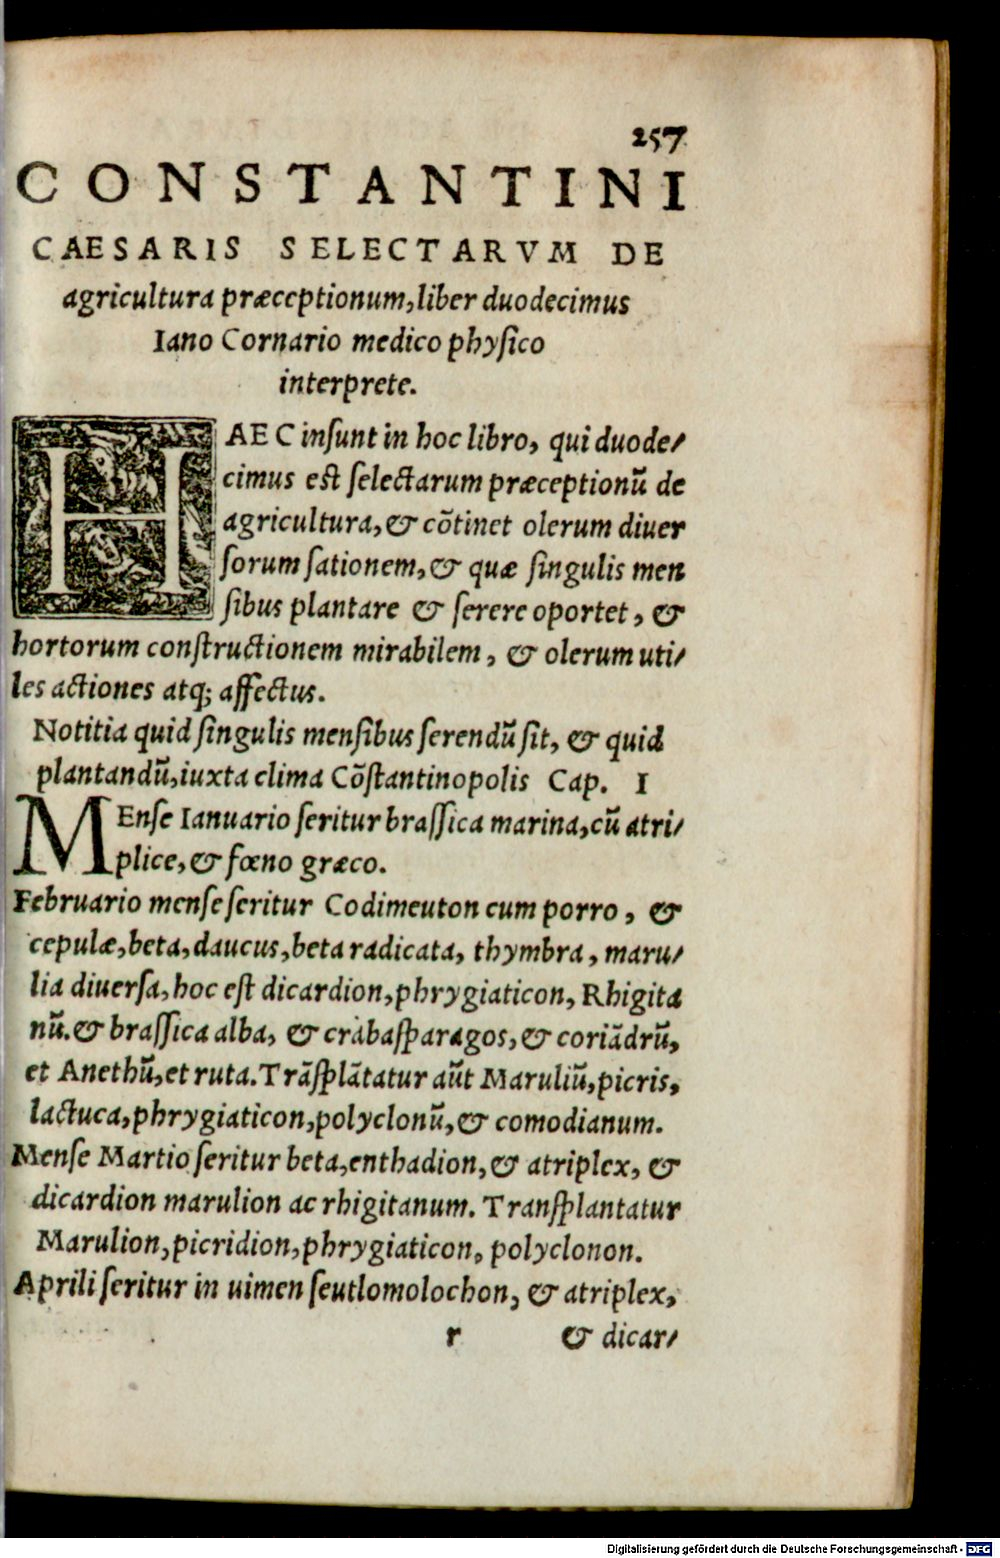 257
CONSTANTINI
CAESARIS SELECTARVM DE
agricultura præceptionum, liber duodecimus
Iano Cornario medico physico
interprete.
HAEC inſunt in hoc libro, qui duode/
cimus eſt ſelectarum præceptionũ de
agricultura, & cõtinet olerum diuer
ſorum ſationem, & quæ ſingulis men
ſibus plantare & ſerere oportet, &
hortorum conſtructionem mirabilem, & olerum uti/
les actiones atq; affectus.
Notitia quid ſingulis menſibus ſerendũ ſit, & quid
plantandũ, iuxta clima Cõſtantinopolis Cap. I
MEnſe Ianuario ſeritur braſſica marina, cũ atri/
plice, & fœno græco.
Februario menſe ſeritur Codimeuton cum porro, &
cepulæ, beta, daucus, beta radicata, thymbra, maru/
lia diuerſa, hoc eſt dicardion, phrygiaticon, Rhigita
nũ. & braſſica alba, & crabaſparagos, & coriãdrũ,
et Anethũ, et ruta. Trãſplãtatur aũt Maruliũ, picris,
lactuca, phrygiaticon, polyclonũ, & comodianum.
Menſe Martio ſeritur beta, enthadion, & atriplex, &
dicardion marulion ac rhigitanum. Tranſplantatur
Marulion, picridion, phrygiaticon, polyclonon.
Aprili ſeritur in uimen ſeutlomolochon, & atriplex,
r & dicar/
Digitalisierung gefördert durch die Deutsche Forschungsgemeinschaft - DFG